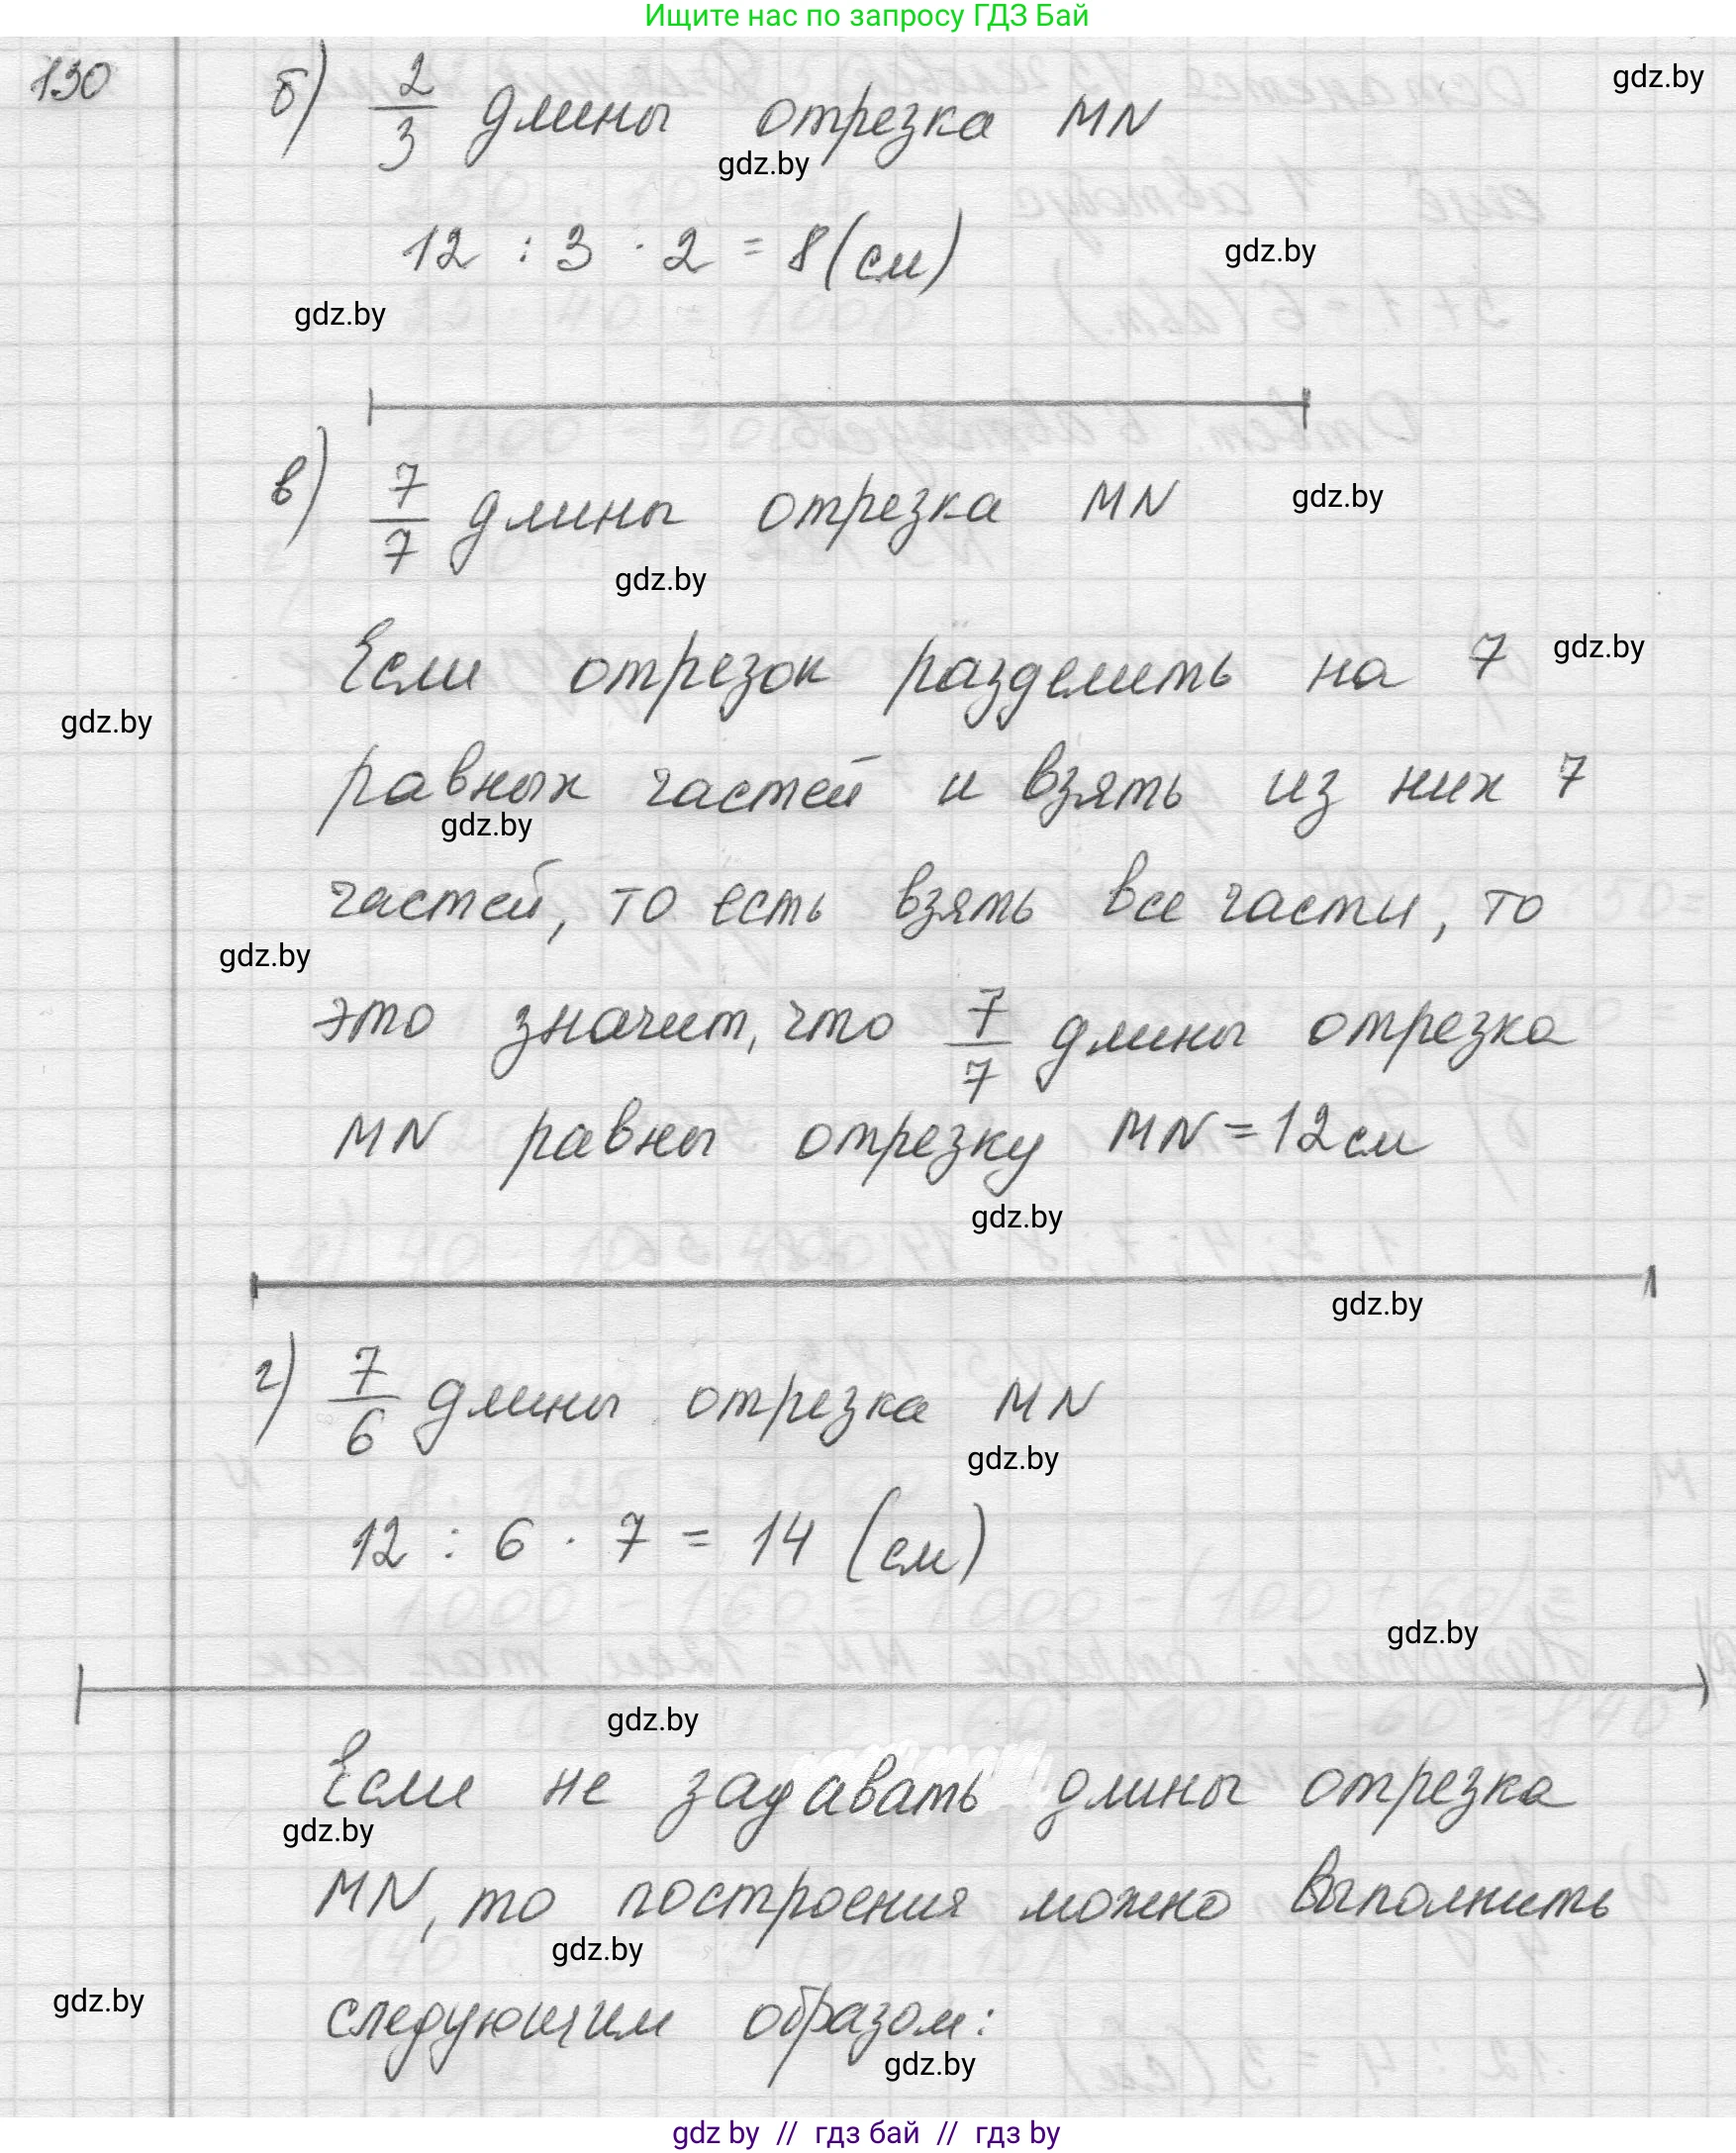 Ищите нас по запросу ГДЗ Бай
130 б) 2/3 длины отрезка MN gdz.by
gdz.by
12 : 3 · 2 = 8 (см) gdz.by
gdz.by
в) 7/7 длины отрезка MN gdz.by
gdz.by
Если отрезок разделить на 7 gdz.by
gdz.by
равных частей и взять из них 7
gdz.by
частей, то есть взять все части, то
gdz.by
это значит, что 7/7 длины отрезка
MN равны отрезку MN = 12 см
gdz.by
gdz.by
г) 7/6 длины отрезка MN
gdz.by
12 : 6 · 7 = 14 (см)
gdz.by
gdz.by
Если не задавать длины отрезка
gdz.by
MN, то построения можно выполнить
gdz.by
gdz.by
следующим образом:
gdz.by
gdz by // гдз бай // гдз by